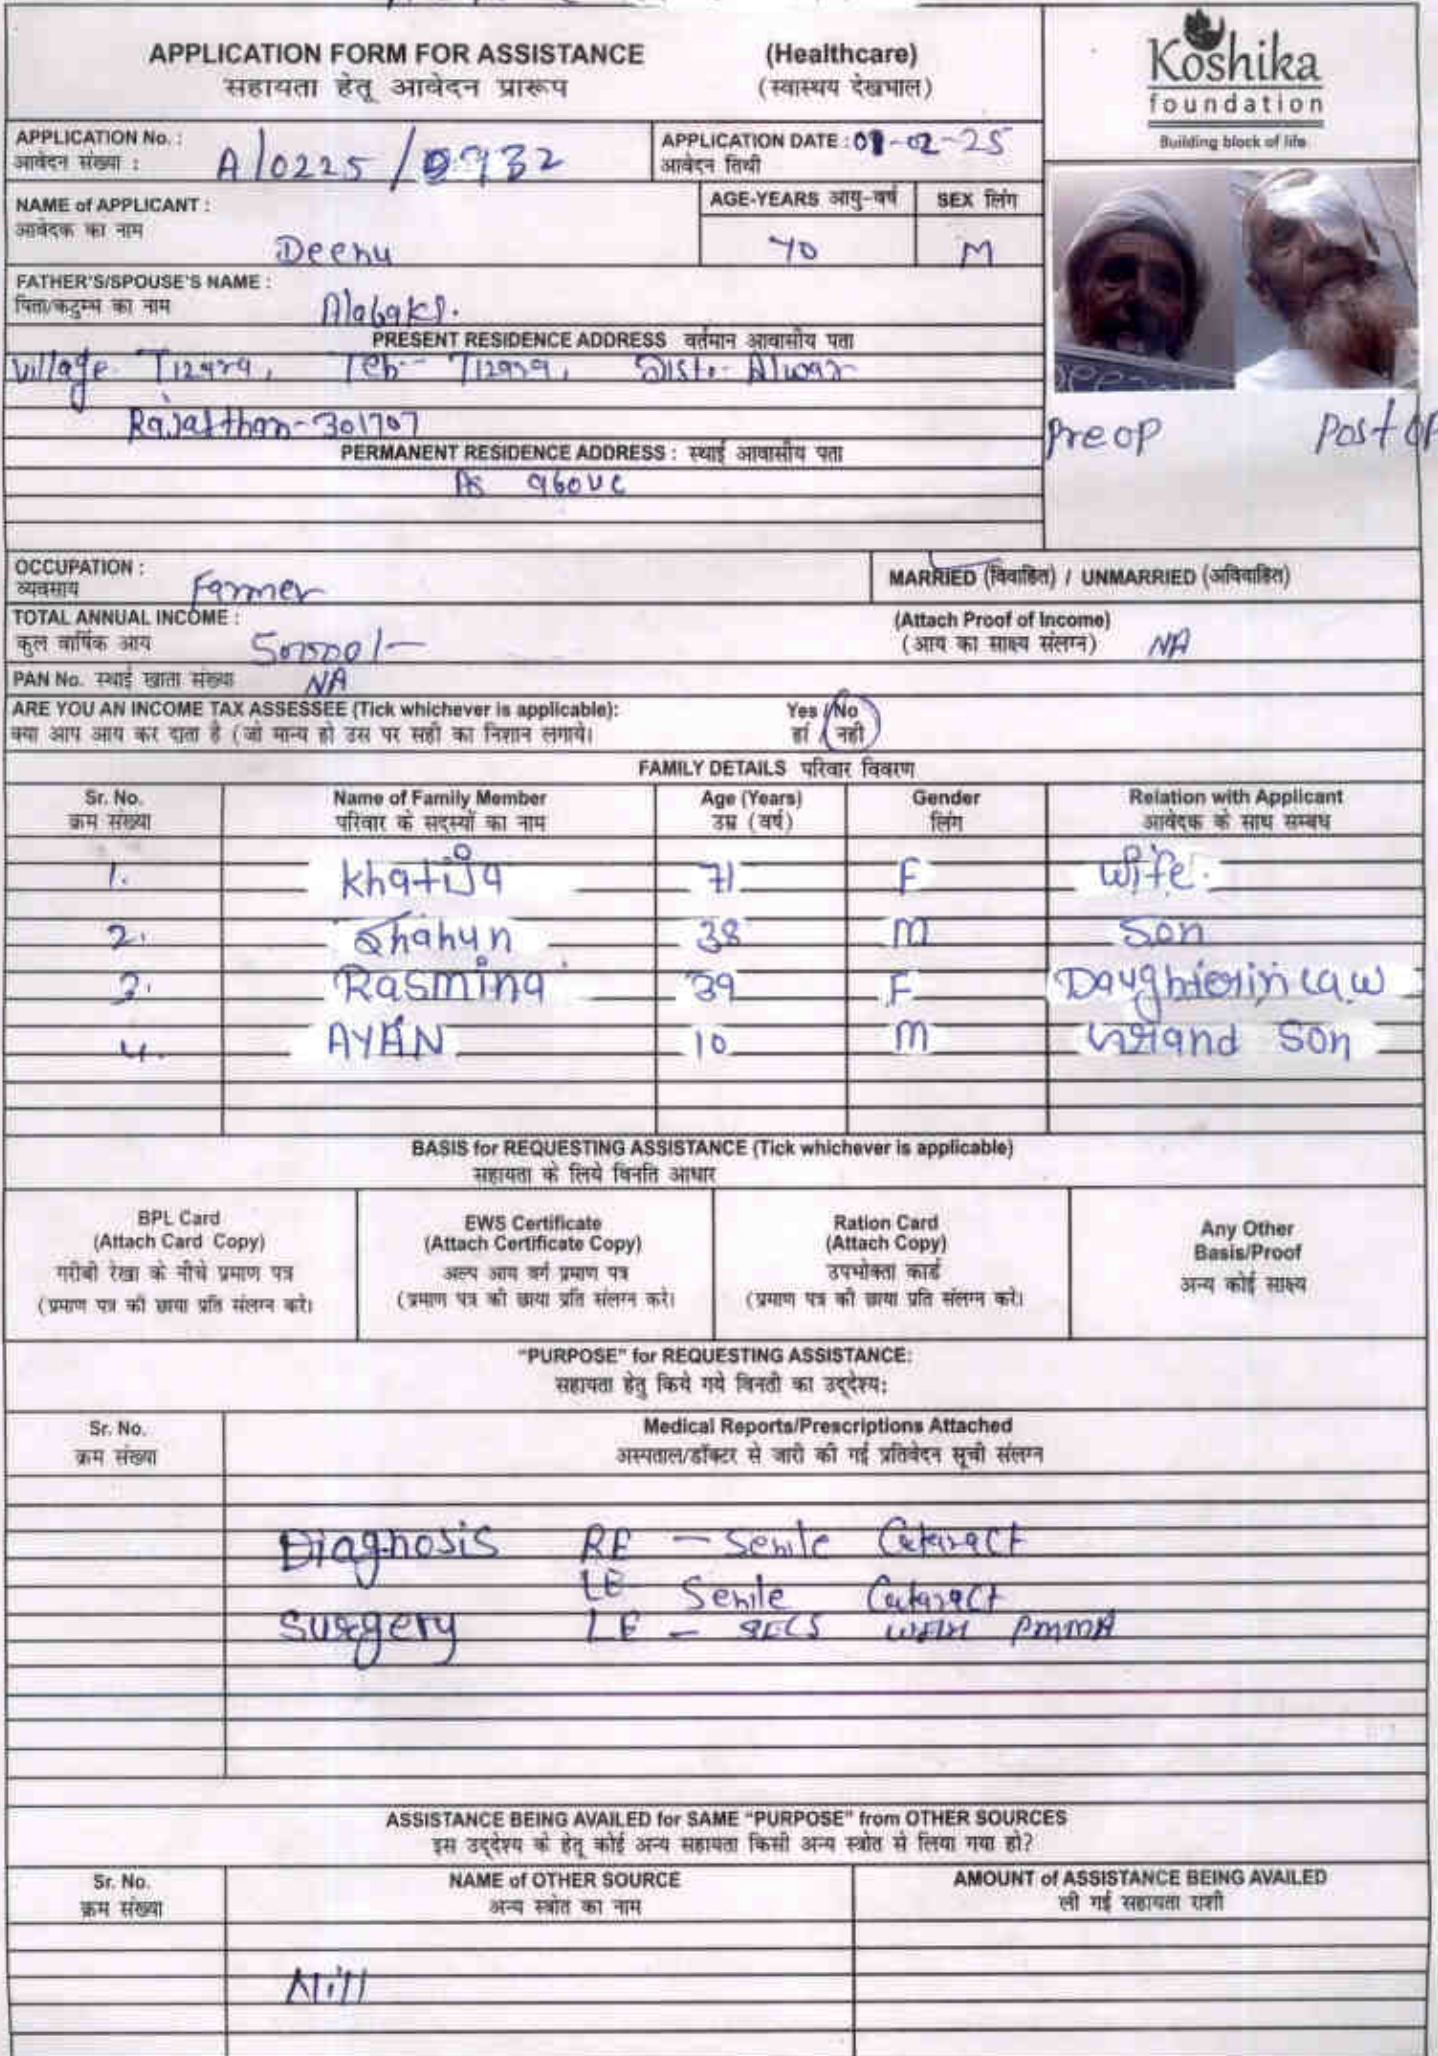 APPLICATION FORM FOR ASSISTANCE (Healthcare)
सहायता हेतू आवेदन प्रारूप (स्वास्थय देखभाल)
Koshika
foundation
Building block of life
APPLICATION No. :
आवेदन संख्या : A/0225/0932
APPLICATION DATE : 07-02-25
आवेदन तिथी
NAME of APPLICANT :
आवेदक का नाम
Deenu
AGE-YEARS आयु-वर्ष
70
SEX लिंग
M
FATHER'S/SPOUSE'S NAME :
पिता/कटुम्ब का नाम
Alabaks.
PRESENT RESIDENCE ADDRESS वर्तमान आवासीय पता
Village Tizara, Teh- Tizara, Dist- Alwar
Rajasthan-301707
Preop Post op
PERMANENT RESIDENCE ADDRESS : स्थाई आवासीय पता
As above
OCCUPATION :
व्यवसाय Farmer
MARRIED (विवाहित) / UNMARRIED (अविवाहित)
TOTAL ANNUAL INCOME :
कुल वार्षिक आय 50000/-
(Attach Proof of Income)
(आय का साक्ष्य संलग्न) NA
PAN No. स्थाई खाता संख्या NA
ARE YOU AN INCOME TAX ASSESSEE (Tick whichever is applicable): Yes / No
क्या आप आय कर दाता है (जो मान्य हो उस पर सही का निशान लगाये। हां / नही
FAMILY DETAILS परिवार विवरण
Sr. No. Name of Family Member Age (Years) Gender Relation with Applicant
क्रम संख्या परिवार के सदस्यों का नाम उम्र (वर्ष) लिंग आवेदक के साथ सम्बध
1. Khatija 71 F Wife.
2. Shahun 38 M Son
3. Rasmina 39 F Daughterin law
4. AYAN 10 M Grand Son
BASIS for REQUESTING ASSISTANCE (Tick whichever is applicable)
सहायता के लिये विनति आधार
BPL Card
(Attach Card Copy)
गरीबी रेखा के नीचे प्रमाण पत्र
(प्रमाण पत्र की छाया प्रति संलग्न करे।
EWS Certificate
(Attach Certificate Copy)
अल्प आय वर्ग प्रमाण पत्र
(प्रमाण पत्र की छाया प्रति संलग्न करे।
Ration Card
(Attach Copy)
उपभोक्ता कार्ड
(प्रमाण पत्र की छाया प्रति संलग्न करे।
Any Other
Basis/Proof
अन्य कोई साक्ष्य
"PURPOSE" for REQUESTING ASSISTANCE:
सहायता हेतु किये गये विनती का उद्देश्य:
Sr. No. Medical Reports/Prescriptions Attached
क्रम संख्या अस्पताल/डॉक्टर से जारी की गई प्रतिवेदन सूची संलग्न
Diagnosis RE - Senile Cataract
LE Senile Cataract
Surgery LE - SICS with PMMA
ASSISTANCE BEING AVAILED for SAME "PURPOSE" from OTHER SOURCES
इस उद्देश्य के हेतू कोई अन्य सहायता किसी अन्य स्त्रोत से लिया गया हो?
Sr. No. NAME of OTHER SOURCE AMOUNT of ASSISTANCE BEING AVAILED
क्रम संख्या अन्य स्त्रोत का नाम ली गई सहायता राशी
Nill